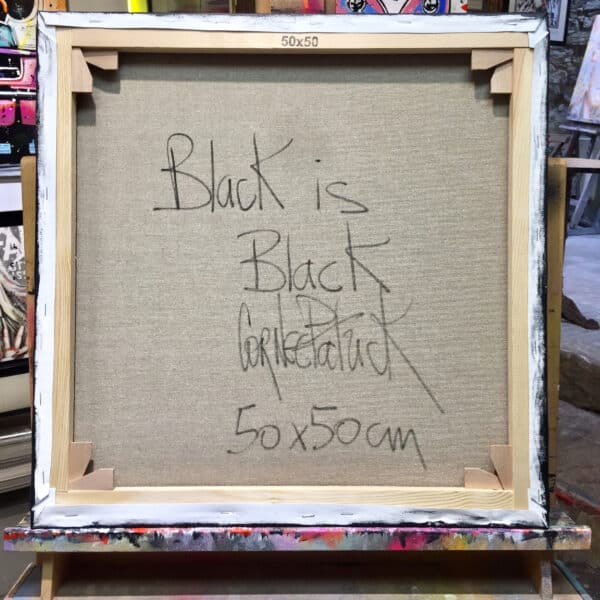 50x50
Black is
Black
CorNeePatrick
50x50cm